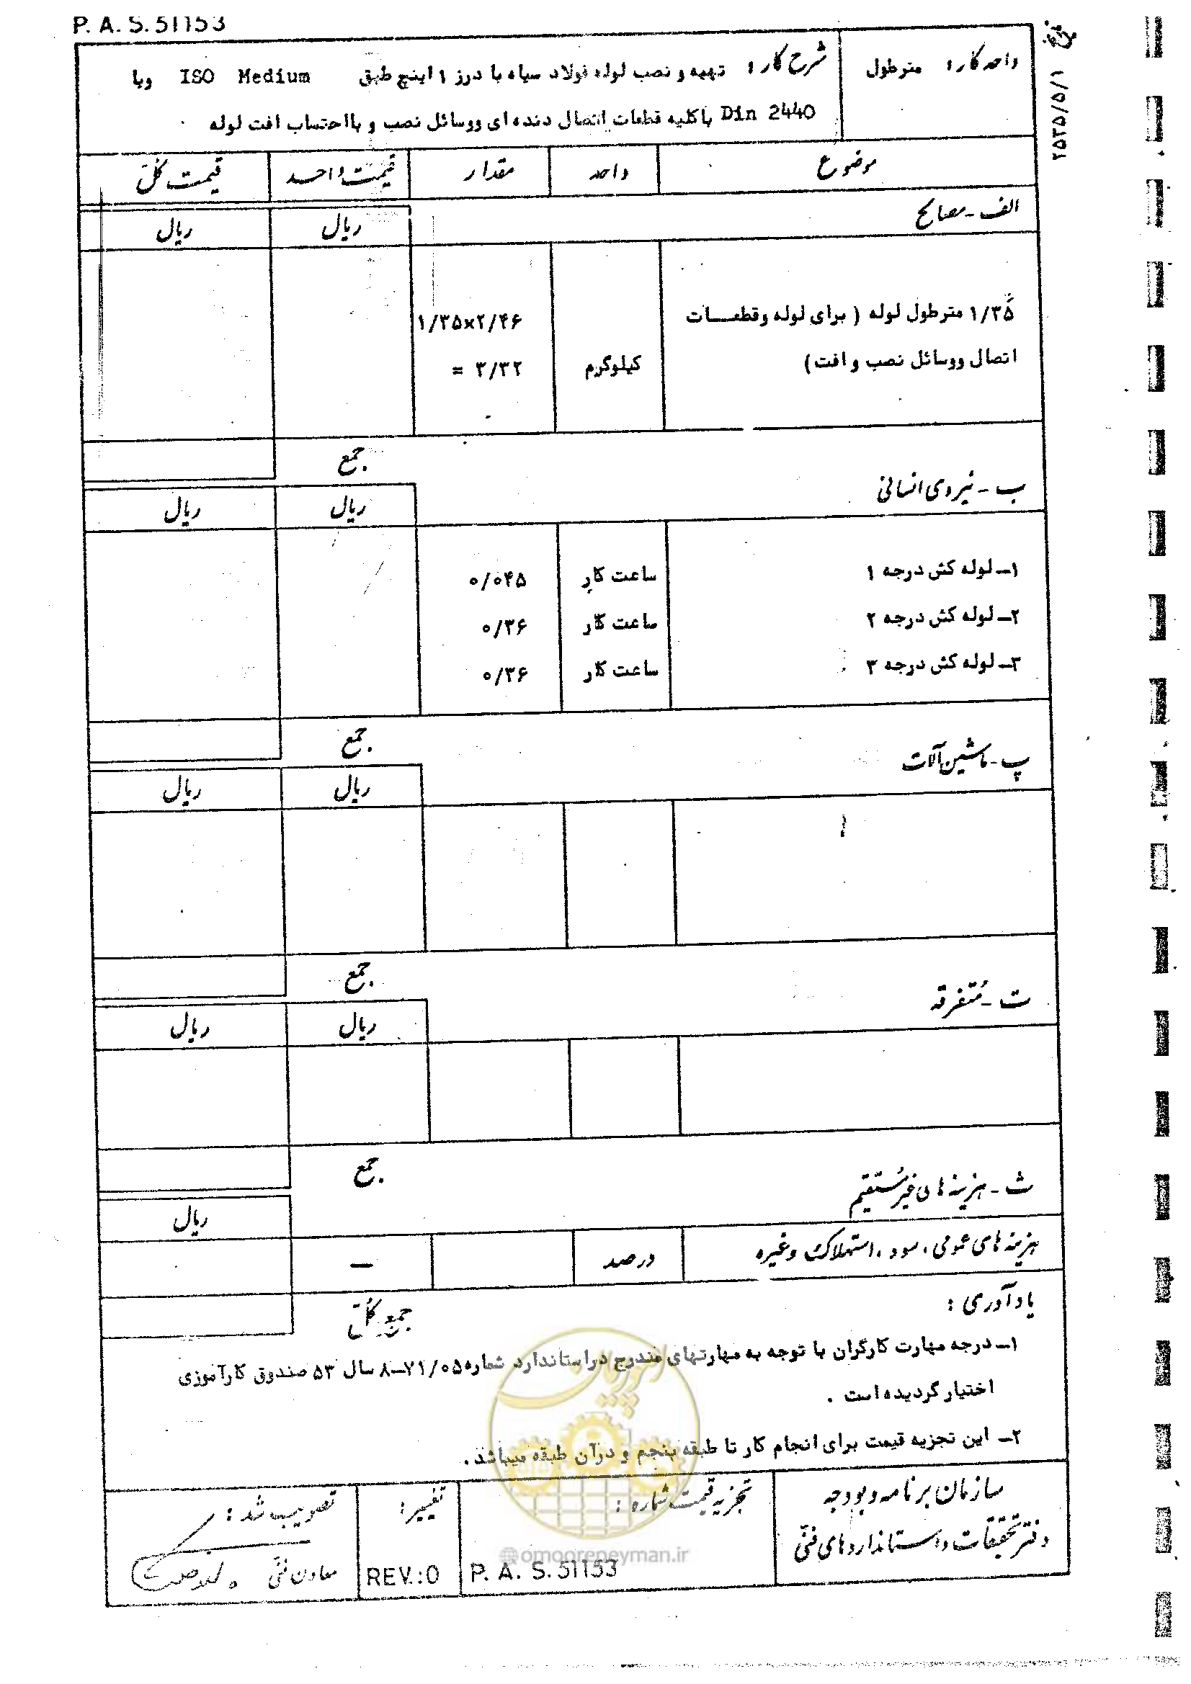 P. A. S. 51153
تاریخ ۲۵۳۵/۵/۱
واحد کار: مترطول
شرح کار: تهیه و نصب لوله فولاد سیاه با درز ۱ اینچ طبق ISO Medium ویا
Din 2440 باکلیه قطعات اتصال دنده ای ووسائل نصب و بااحتساب افت لوله .
موضوع واحد مقدار قیمت واحد قیمت کل
الف - مصالح
ریال ریال
۱/۳۵ مترطول لوله ( برای لوله وقطعــات ۱/۳۵×۲/۴۶
اتصال ووسائل نصب و افت) کیلوگرم = ۳/۳۲
جمع
ب - نیروی انسانی
ریال ریال
۱ــ لوله کش درجه ۱ ساعت کار ۰/۰۴۵
۲ــ لوله کش درجه ۲ ساعت کار ۰/۳۶
۳ــ لوله کش درجه ۳ ساعت کار ۰/۳۶
جمع
پ - ماشین آلات
ریال ریال
جمع
ت - متفرقه
ریال ریال
جمع
ث - هزینه های غیرمستقیم
ریال
هزینه های عمومی ، سود ، استهلاک وغیره درصد —
جمع کل
یادآوری :
۱ــ درجه مهارت کارگران با توجه به مهارتهای مندرج دراستاندارد شماره ۷۱/۰۵ــ۸ سال ۵۳ صندوق کارآموزی
اختیار گردیده است .
۲ــ این تجزیه قیمت برای انجام کار تا طبقه پنجم و درآن طبقه میباشد .
سازمان برنامه و بودجه
دفتر تحقیقات و استانداردهای فنی
تجزیه قیمت شماره :
P. A. S. 51153
تغییر :
REV.:0
تصویب شد :
معاون فنی
امور پیمان
@omoorepeyman.ir